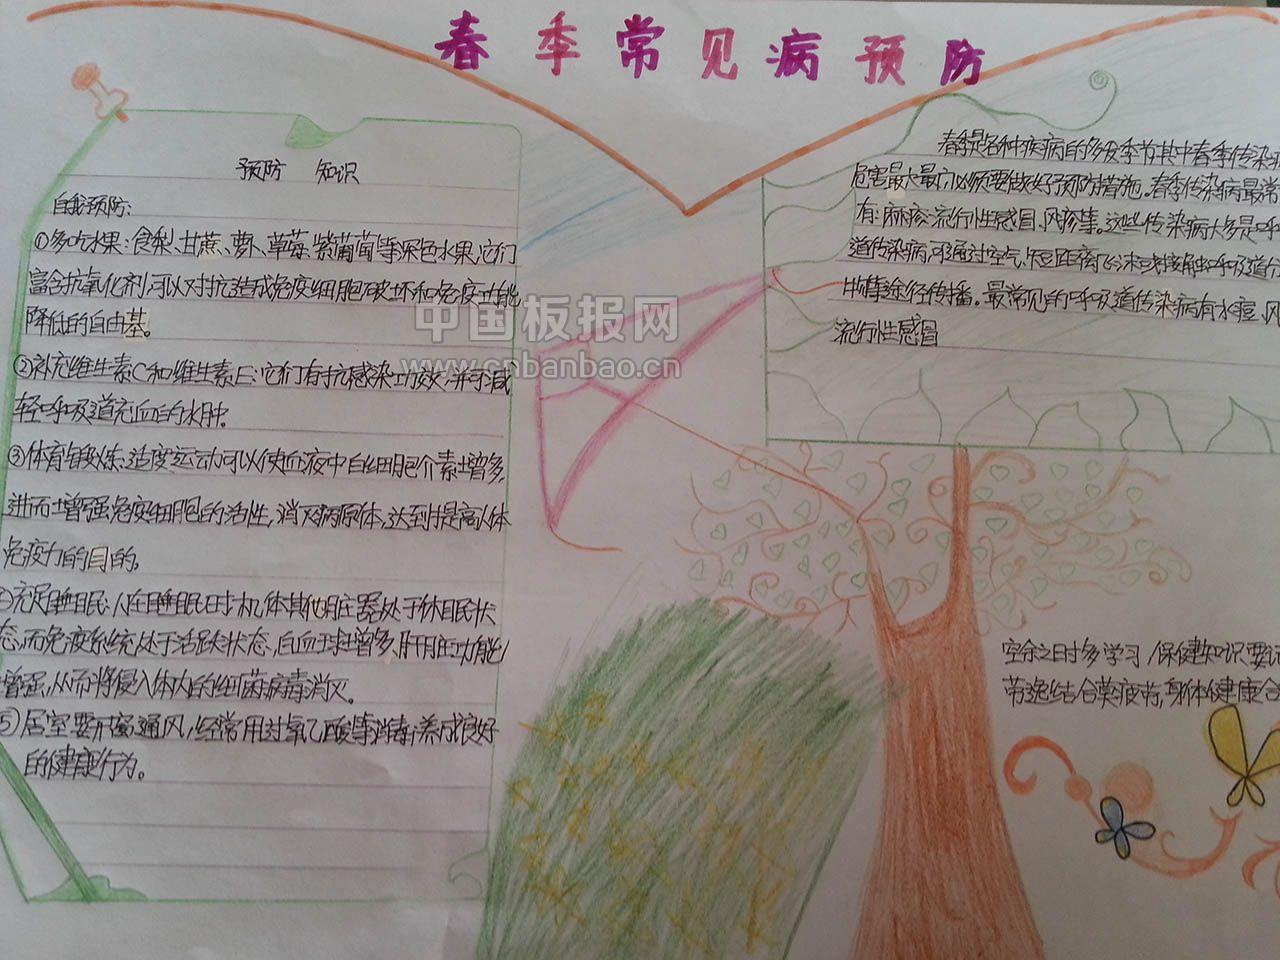 春季常见病预防
预防 知识
自我预防:
①多吃水果:食梨、甘蔗、萝卜、草莓、紫葡萄等深色水果,它们
富含抗氧化剂,可以对抗造成免疫细胞破坏和免疫功能
降低的自由基。
②补充维生素C和维生素E:它们有抗感染功效,并可减
轻呼吸道充血的水肿。
③体育锻炼:适度运动可以使血液中白细胞介素增多,
进而增强免疫细胞的活性,消灭病原体,达到提高人体
免疫力的目的。
充足睡眠:人在睡眠时,机体其他脏器处于休眠状
态,而免疫系统处于活跃状态,白血球增多,肝脏功能
增强,从而将侵入体内的细菌病毒消灭。
⑤居室要开窗通风,经常用过氧乙酸等消毒,养成良好
的健康行为。
春季是各种疾病的多发季节其中春季传染
危害最大最广,必须要做好预防措施。春季传染病最常
有:麻疹、流行性感冒、风疹等。这些传染病大多是呼
道传染病,可通过空气、短距离飞沫或接触呼吸道分
物等途径传播。最常见的呼吸道传染病有水痘、风
流行性感冒
空余之时多学习,保健知识要
节逸结合莫疲劳,身体健康合
中国板报网
www.cnbanbao.cn